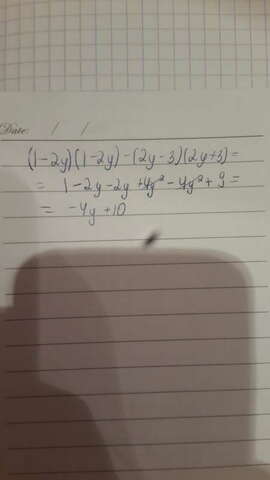 Date: / /
(1-2y)(1-2y)-(2y-3)(2y+3)=
= 1-2y-2y+4y²-4y²+9=
= -4y+10